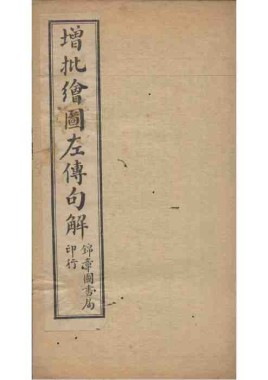 增批繪圖左傳句解
錦章圖書局
印行